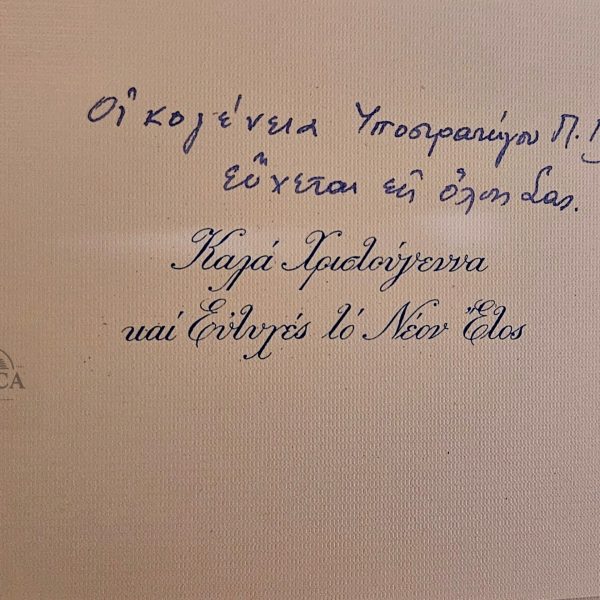 Οἰκογένεια Υποστρατήγου Π.
εὔχεται εἰς ὅλους Σας.
Καλά Χριστούγεννα
καί Εὐτυχές τό Νέον Ἔτος
CA